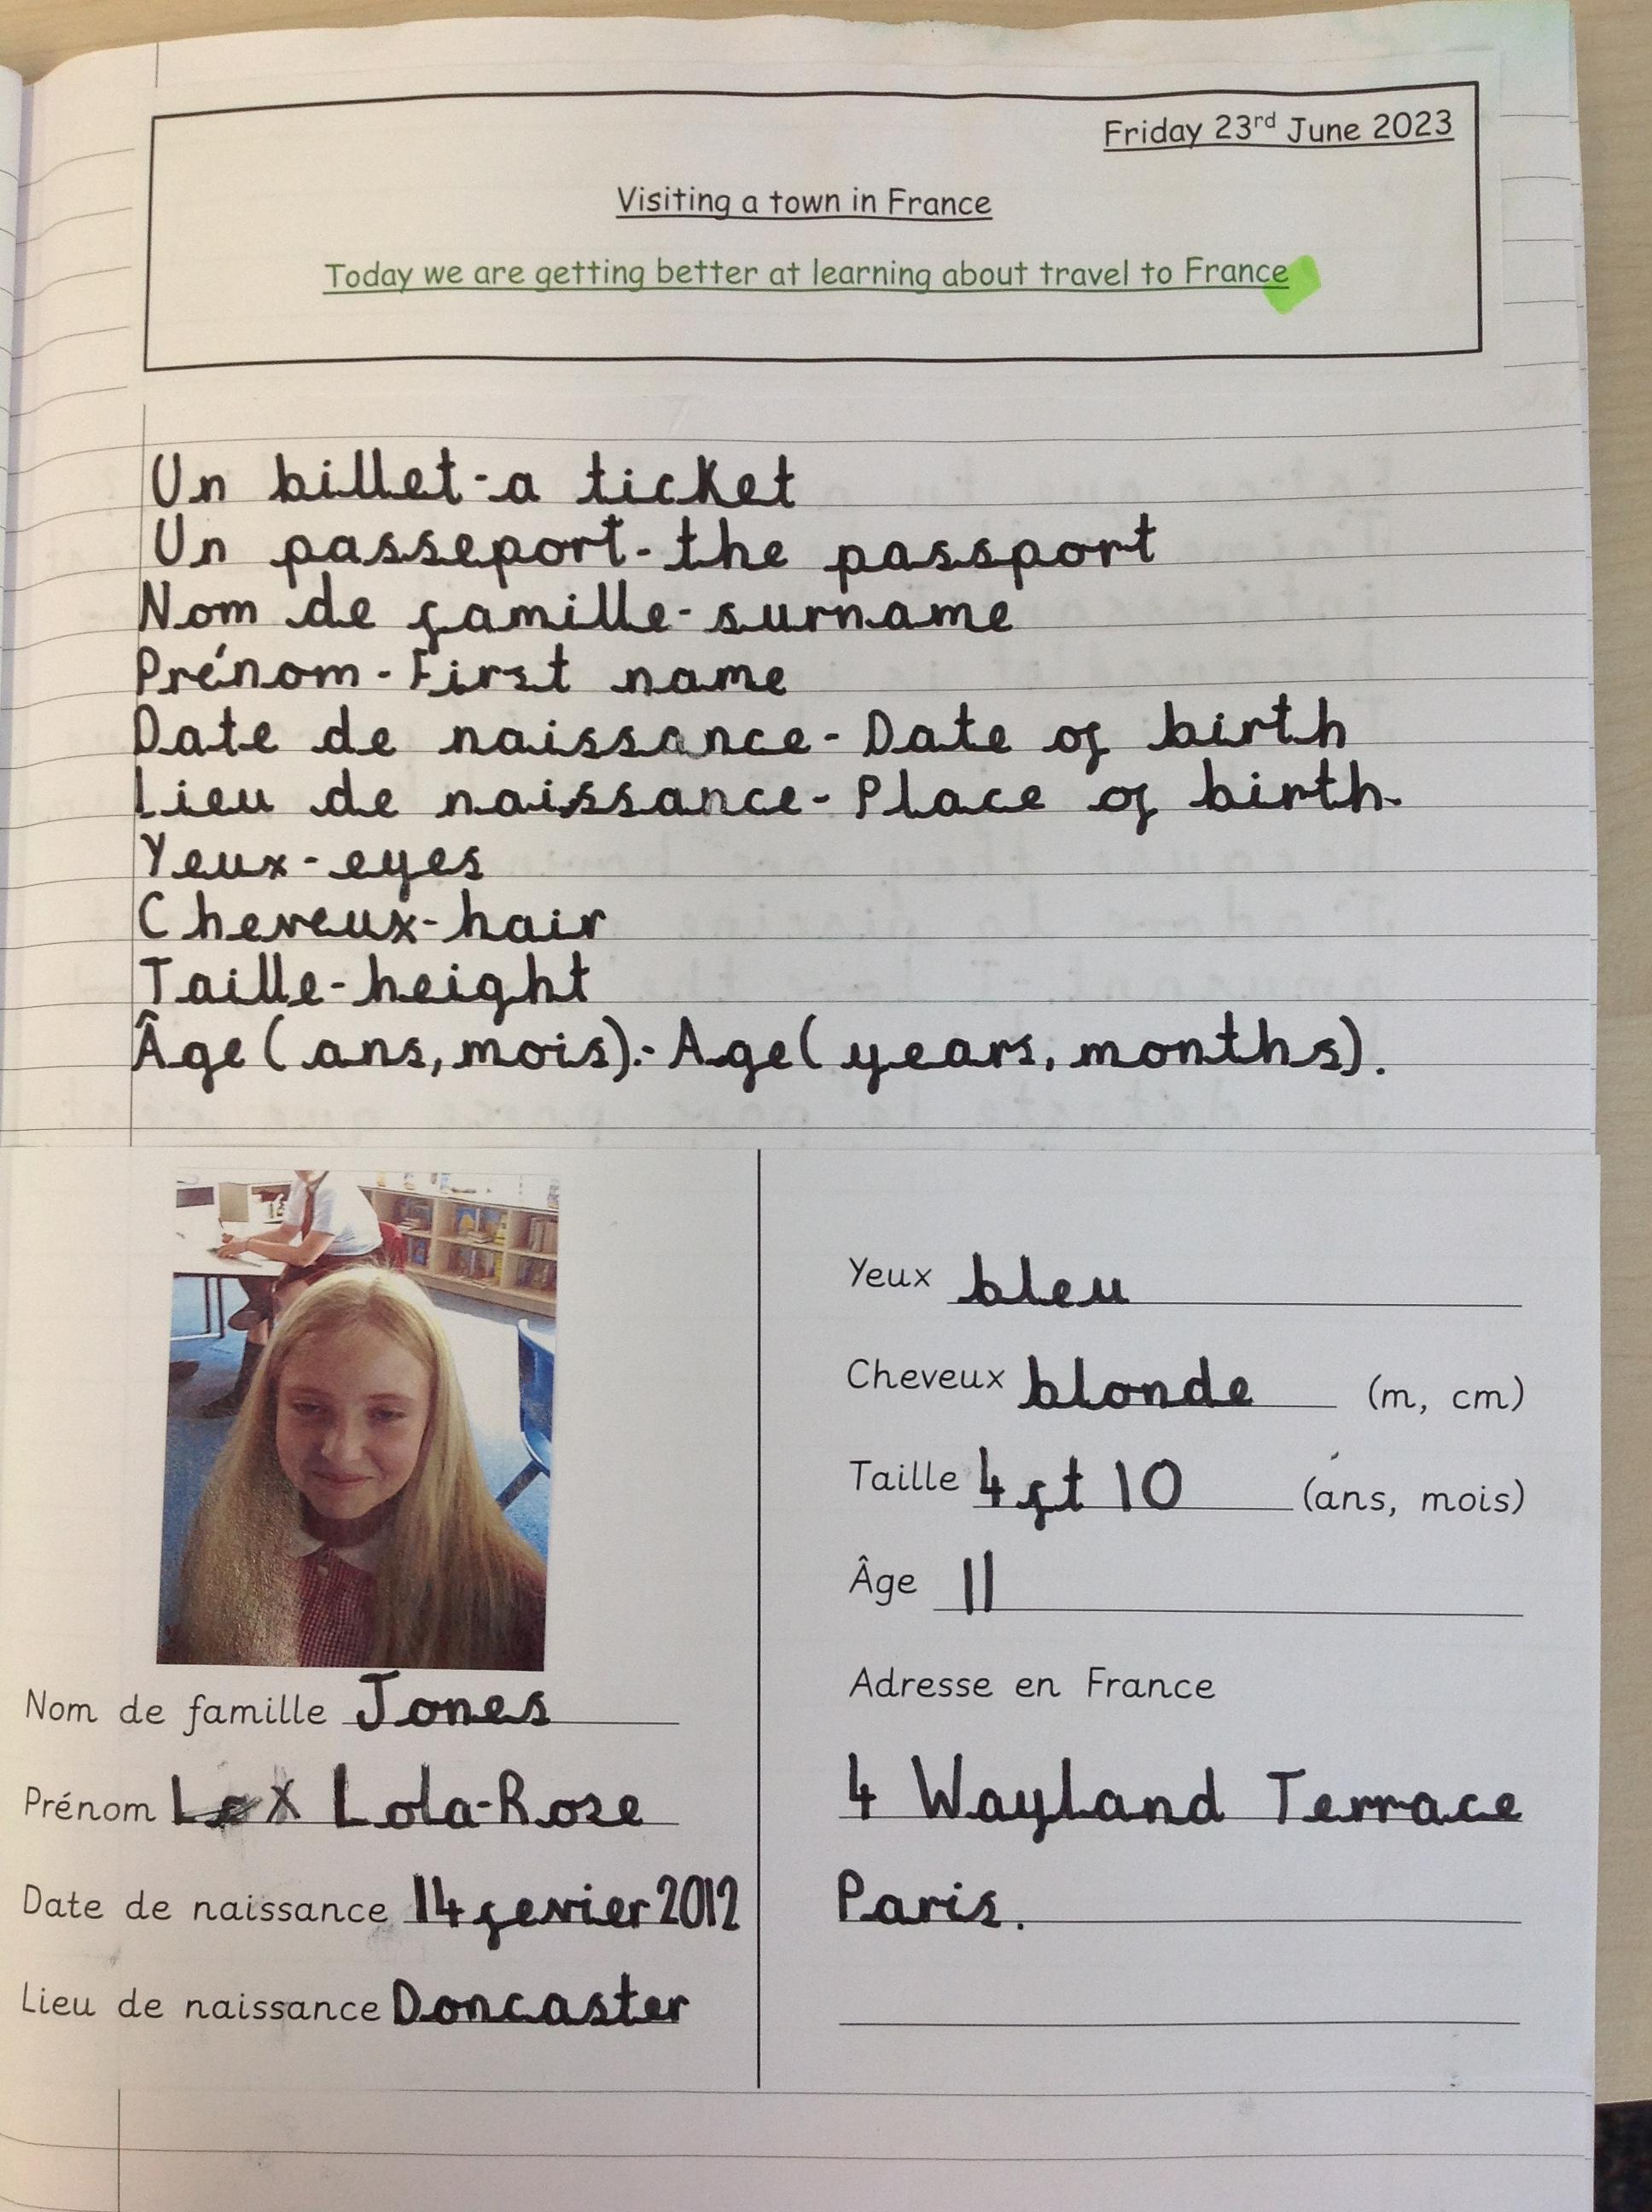 Friday 23rd June 2023
Visiting a town in France
Today we are getting better at learning about travel to France
Un billet-a ticket
Un passeport-the passport
Nom de famille-surname
Prénom-First name
Date de naissance-Date of birth
Lieu de naissance-Place of birth.
Yeux-eyes
Cheveux-hair
Taille-height
Âge(ans,mois).-Age(years,months).
Nom de famille Jones
Prénom Lola-Rose
Date de naissance 14 fevrier 2012
Lieu de naissance Doncaster
Yeux bleu
Cheveux blonde (m, cm)
Taille 4ft 10 (ans, mois)
Âge 11
Adresse en France
4 Wayland Terrace
Paris.